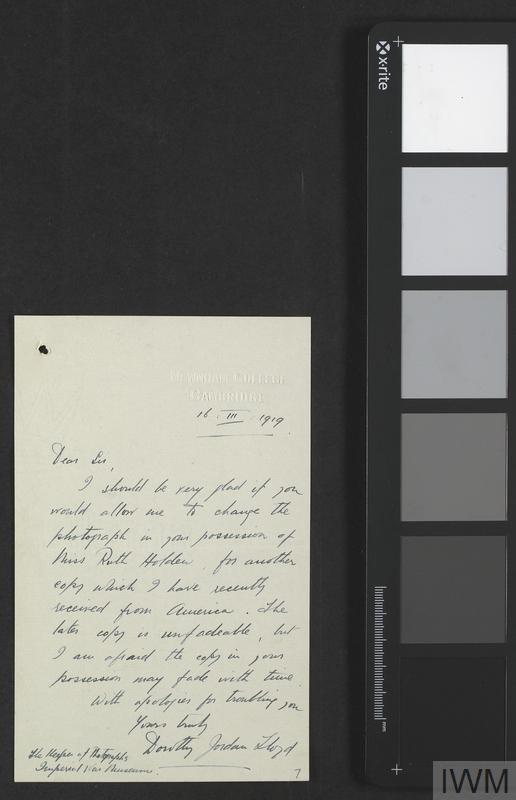 NEWNHAM COLLEGE
CAMBRIDGE
16 . III . 1919.
Dear Sir,
I should be very glad if you
would allow me to change the
photograph in your possession of
Miss Ruth Holden, for another
copy which I have recently
received from America. The
later copy is unfadeable, but
I am afraid the copy in your
possession may fade with time.
With apologies for troubling you
Yours truly
Dorothy Jordan Lloyd
The Keeper of Photographs
Imperial War Museum.
7
x-rite
mm
IWM